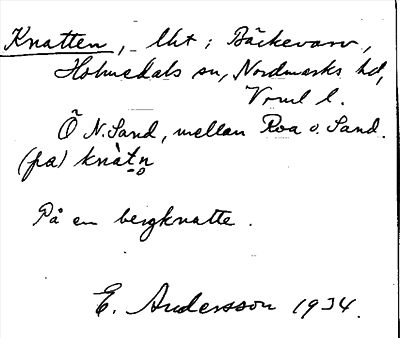 Knatten, lht i Bäckevarv,
Holmedals sn, Nordmarks hd,
Vrml l.
Ö N. Sand, mellan Roa o. Sand.
(pa) knàtn̥
På en bergknatte.
E. Andersson 1934.